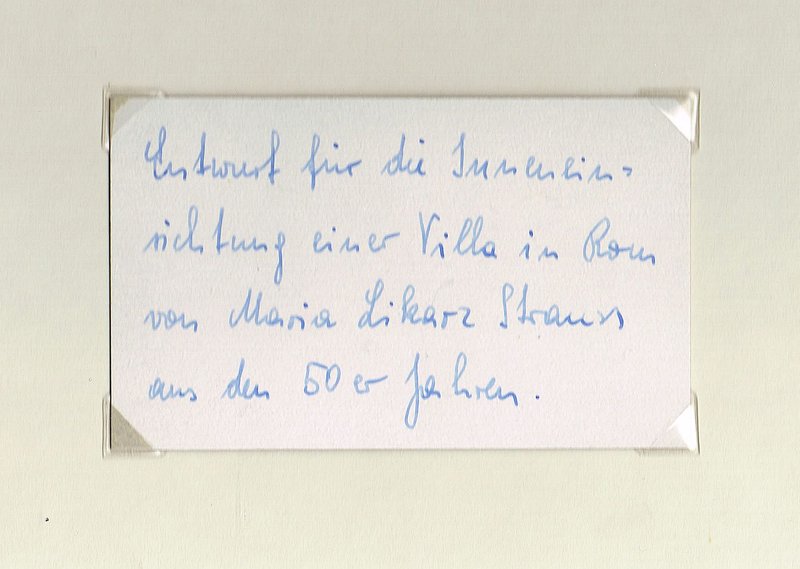 Entwurf für die Innenein=
richtung einer Villa in Rom
von Maria Likarz Strauss
aus den 50er Jahren.